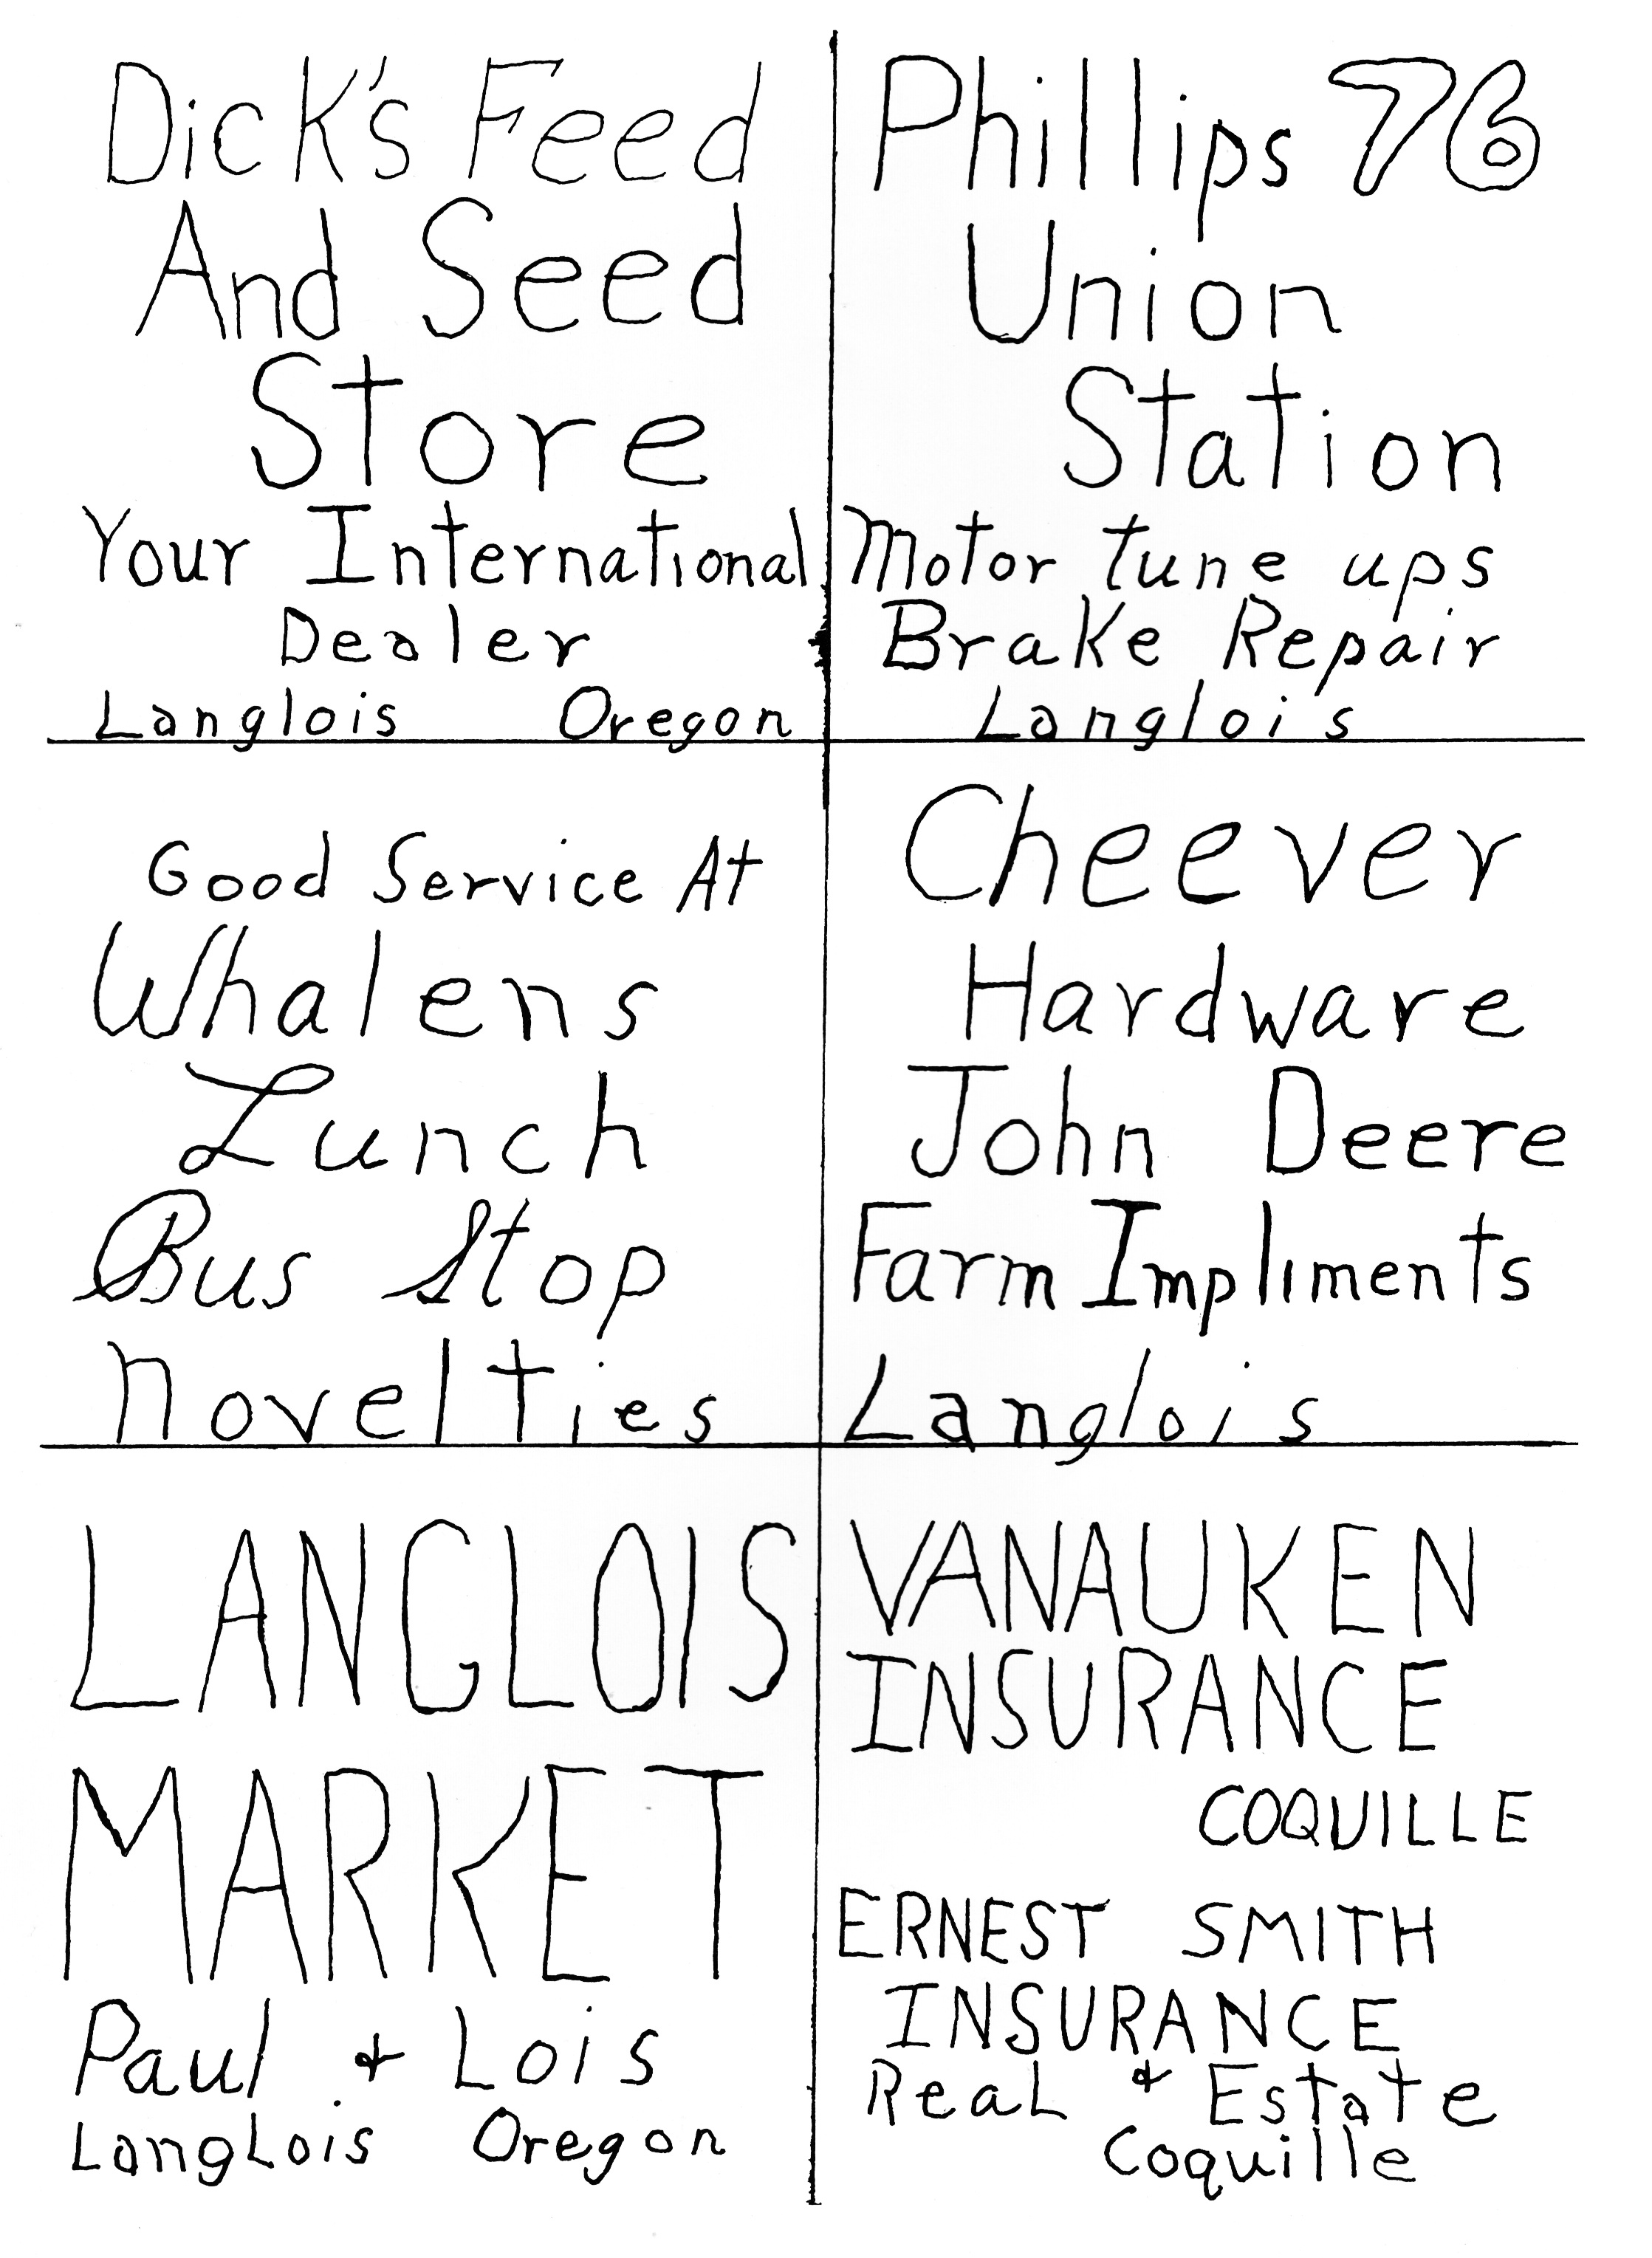 Dick's Feed
And Seed
Store
Your International
Dealer
Langlois Oregon
Phillips 76
Union
Station
Motor tune ups
Brake Repair
Langlois
Good Service At
Whalens
Lunch
Bus Stop
Novelties
Cheever
Hardware
John Deere
Farm Impliments
Langlois
LANGLOIS
MARKET
Paul & Lois
LangLois Oregon
VANAUKEN
INSURANCE
COQUILLE
ERNEST SMITH
INSURANCE
ReaL & Estate
Coquille